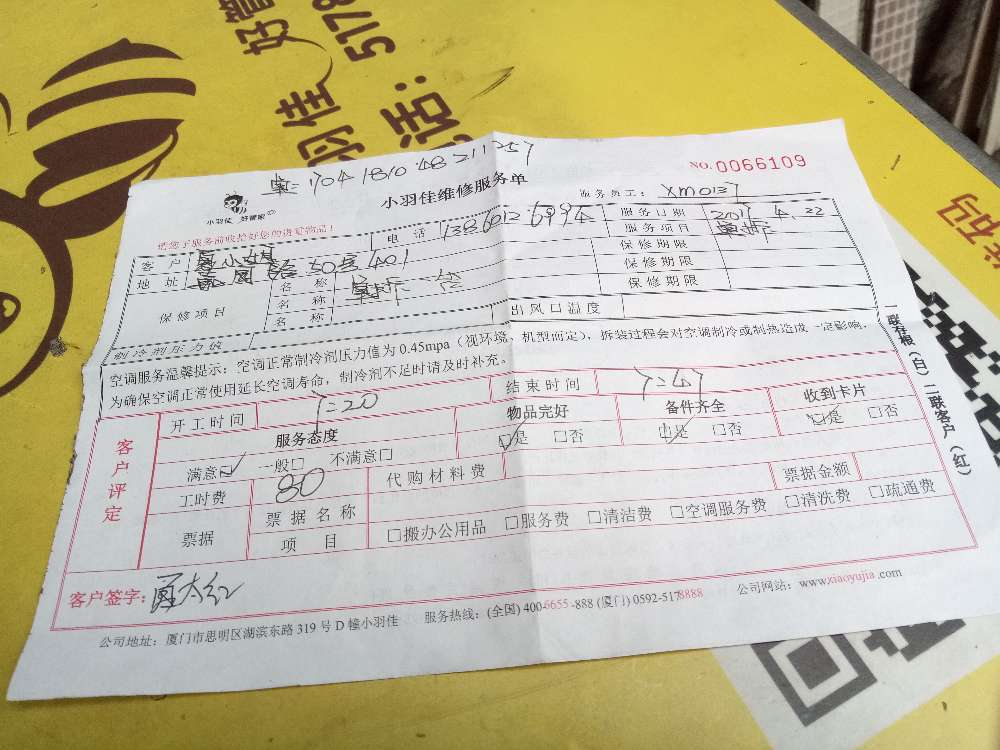 好管
羽佳
话: 5178
1704181048211257
NO.0066109
小羽佳维修服务单
小羽佳 好管家
服务员工: XM0137
请您于服务前收拾好您的贵重物品!
客户 电话 服务日期 2017 4.22
地址 50号401 服务项目
保修项目 名称 保修期限
名称 保修期限
名称 保修期限
制冷剂压力值 出风口温度
空调服务温馨提示: 空调正常制冷剂压力值为 0.45mpa (视环境、机型而定), 拆装过程会对空调制冷或制热造成一定影响,
为确保空调正常使用延长空调寿命, 制冷剂不足时请及时补充。
客户评定
开工时间 7:20 结束时间 7:47
服务态度 物品完好 备件齐全 收到卡片
满意□ 一般□ 不满意□ □是 □否 □是 □否 □是 □否
工时费 80 代购材料费
票据 票据名称 票据金额
项目 □搬办公用品 □服务费 □清洁费 □空调服务费 □清洗费 □疏通费
客户签字:
公司地址: 厦门市思明区湖滨东路 319 号 D 幢小羽佳 服务热线: (全国) 400-6655-888 (厦门) 0592-5178888 公司网站: www.xiaoyujia.com
一联存根 (白) 二联客户 (红)